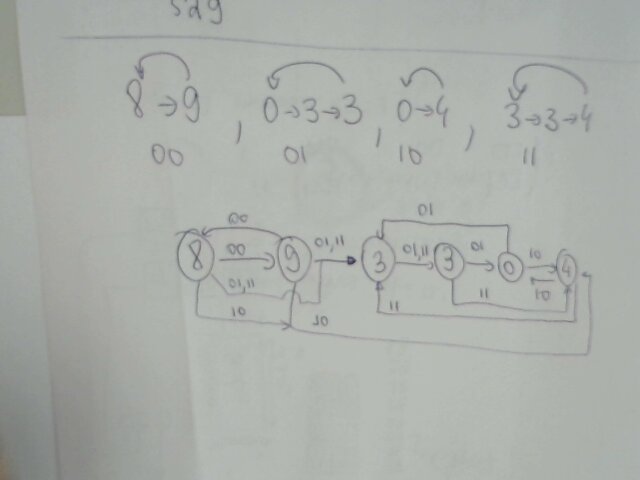 529
8→9, 0→3→3, 0→4, 3→3→4
00 01 10 11
01
00
8 00 9 01,11 3 01,11 3 01 0 10 4
01,11 11 10
10 10 11